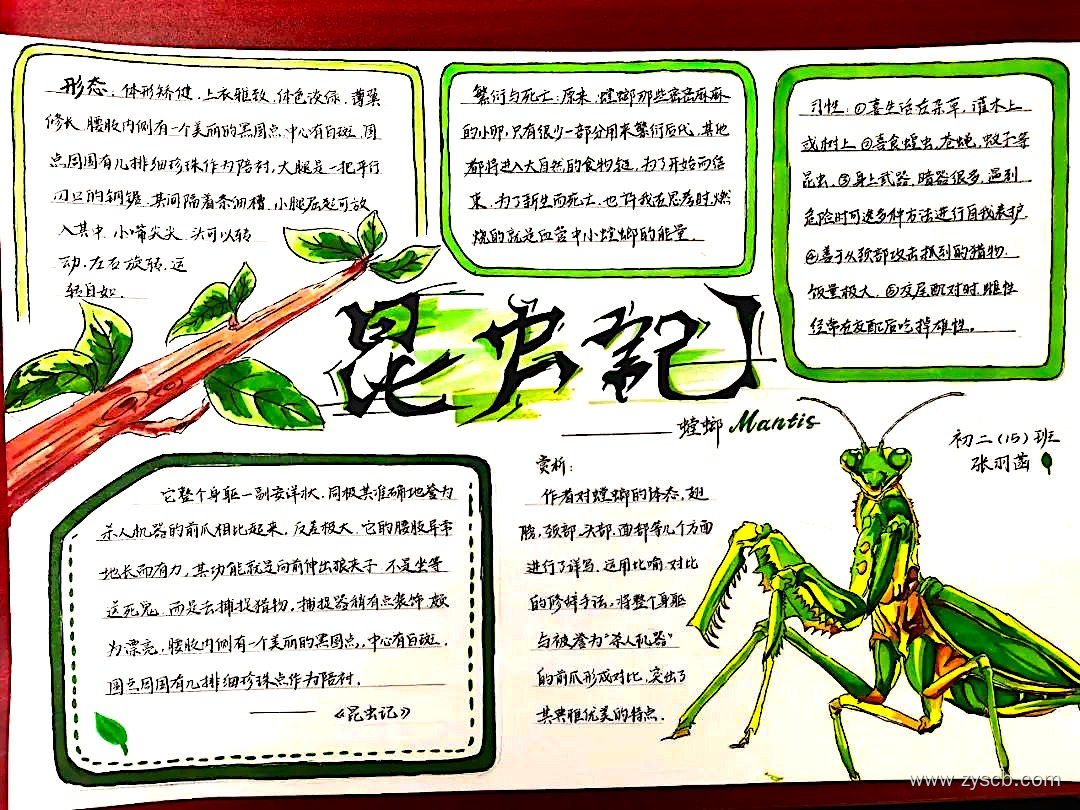 形态：体形矫健，上衣雅致，体色淡绿，薄翼
修长，腰肢内侧有一个美丽的黑圆点，中心有白斑，圆
点周围有几排细珍珠作为陪衬，大腿是一把平行
刃口的钢锯，其间隔着条细槽，小腿屈起可放
入其中，小嘴尖尖，头可以转
动，左右旋转，运
转自如。
繁衍与死亡：原来，螳螂那些密密麻麻
的小卵，只有很少一部分用来繁衍后代，其他
都将进入大自然的食物链，为了开始而结
束，为了新生而死亡，也许我在思考时，燃
烧的就是血管中小螳螂的能量。
习性：①喜生活在杂草，灌木上
或树上 ②喜食蝗虫，苍蝇，蚊子等
昆虫，③身上武器，暗器很多，遇到
危险时可选多种方法进行自我养护
④善于从颈部攻击抓到的猎物，
饭量极大，⑤交尾配对时，雌性
经常在交配后吃掉雄性。
昆虫記
——螳螂 Mantis
初二(15)班
张羽菡
它整个身躯一副安详状，同极其准确地誉为
杀人机器的前爪相比起来，反差极大，它的腰肢异常
地长而有力，其功能就是向前伸出狼夹子，不是坐等
送死鬼，而是去捕捉猎物，捕捉器稍有点装饰，颇
为漂亮，腰肢内侧有一个美丽的黑圆点，中心有白斑，
圆点周围有几排细珍珠点作为陪衬。
——《昆虫记》
赏析：
作者对螳螂的体态，翅
膀，颈部，头部，面部等几个方面
进行了详写，运用比喻，对比
的修辞手法，将整个身躯
与被誉为“杀人机器”
的前爪形成对比，突出了
其典雅优美的特点。
www.zyscb.com